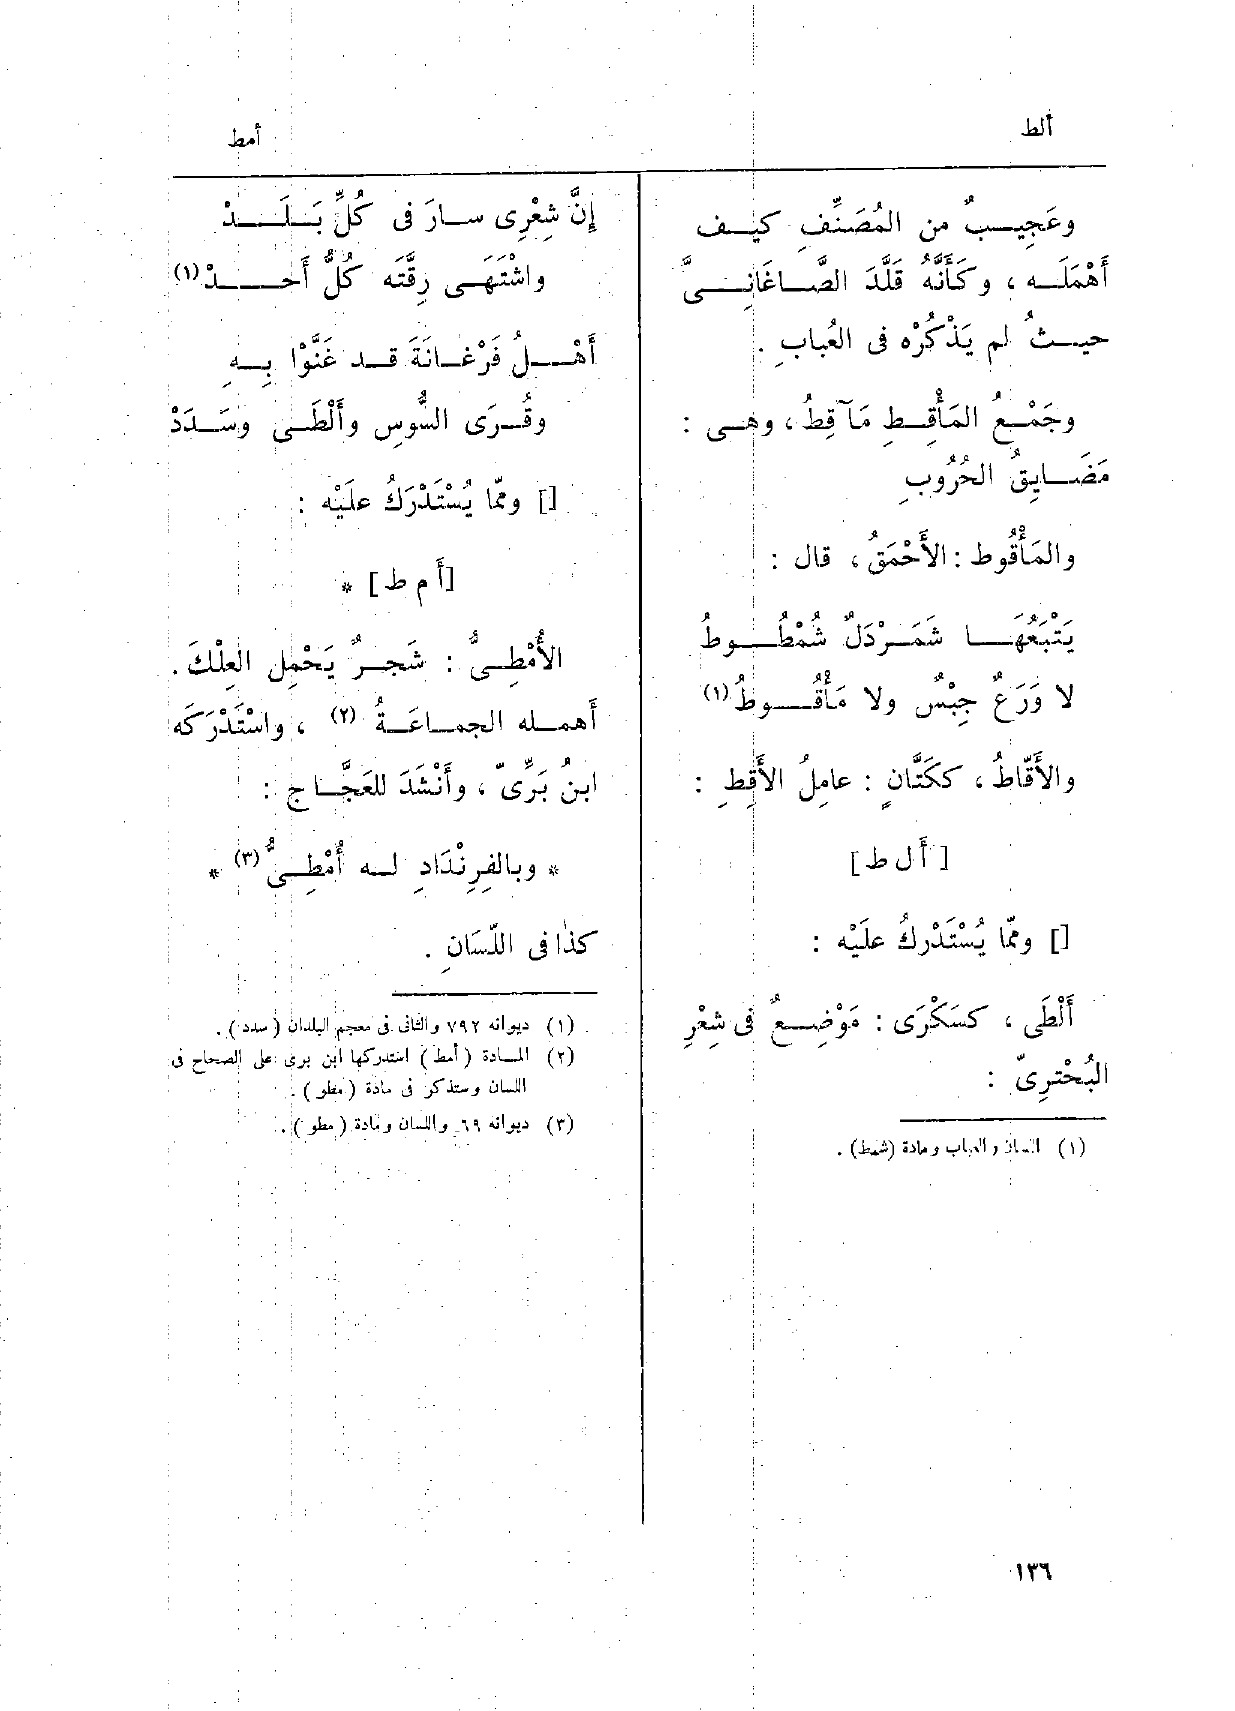 ألط
أمط
وعَجِيبٌ من المُصَنِّفِ كيف
أَهْمَلَه ، وكَأَنَّهُ قلَّدَ الصَّاغَانِىَّ
حيثُ لم يَذْكُرْه فى العُبابِ .
وجَمْعُ المَأْقِطِ مَآقِطُ ، وهى :
مَضَايِقُ الحُرُوبِ
والمَأْقُوط : الأَحْمَقُ ، قال :
يَتْبَعُهَا شَمَرْدَلٌ شُمْطُوطُ
لا وَرَعٌ جِبْسٌ ولا مَأْقُوطُ (١)
والأَقّاطُ ، ككَتَّانٍ : عامِلُ الأَقِطِ :
[ أ ل ط ]
[] وممّا يُسْتَدْركُ علَيْه :
أَلْطَى ، كسَكْرَى : مَوْضِعٌ فى شِعْرِ
البُحْترِىّ :
(١) اللسان والعباب ومادة (شمط) .
إنَّ شِعْرِى سارَ فى كُلِّ بَلَدْ
واشْتَهَى رِقَّتَه كُلُّ أَحَدْ (١)
أَهْلُ فَرْغانَةَ قد غَنَّوْا بِهِ
وقُرَى السُّوسِ وأَلْطَى وسَدَدْ
[] وممّا يُسْتَدْرَكُ علَيْه :
[أ م ط] *
الأُمْطِىُّ : شَجرٌ يَحْمِل العِلْكَ .
أهمله الجماعَةُ (٢) ، واسْتَدْرَكَه
ابنُ بَرِّىّ ، وأَنْشَدَ للعَجَّاج :
* وبالفِرِنْدَادِ له أُمْطِىُّ (٣) *
كذا فى اللّسَانِ .
(١) ديوانه ٧٩٢ والثانى فى معجم البلدان (سدد) .
(٢) المادة (أمط) استدركها ابن برى على الصحاح فى
اللسان وستذكر فى مادة (مطو) .
(٣) ديوانه ٦٩ واللسان ومادة (مطو) .
١٣٦